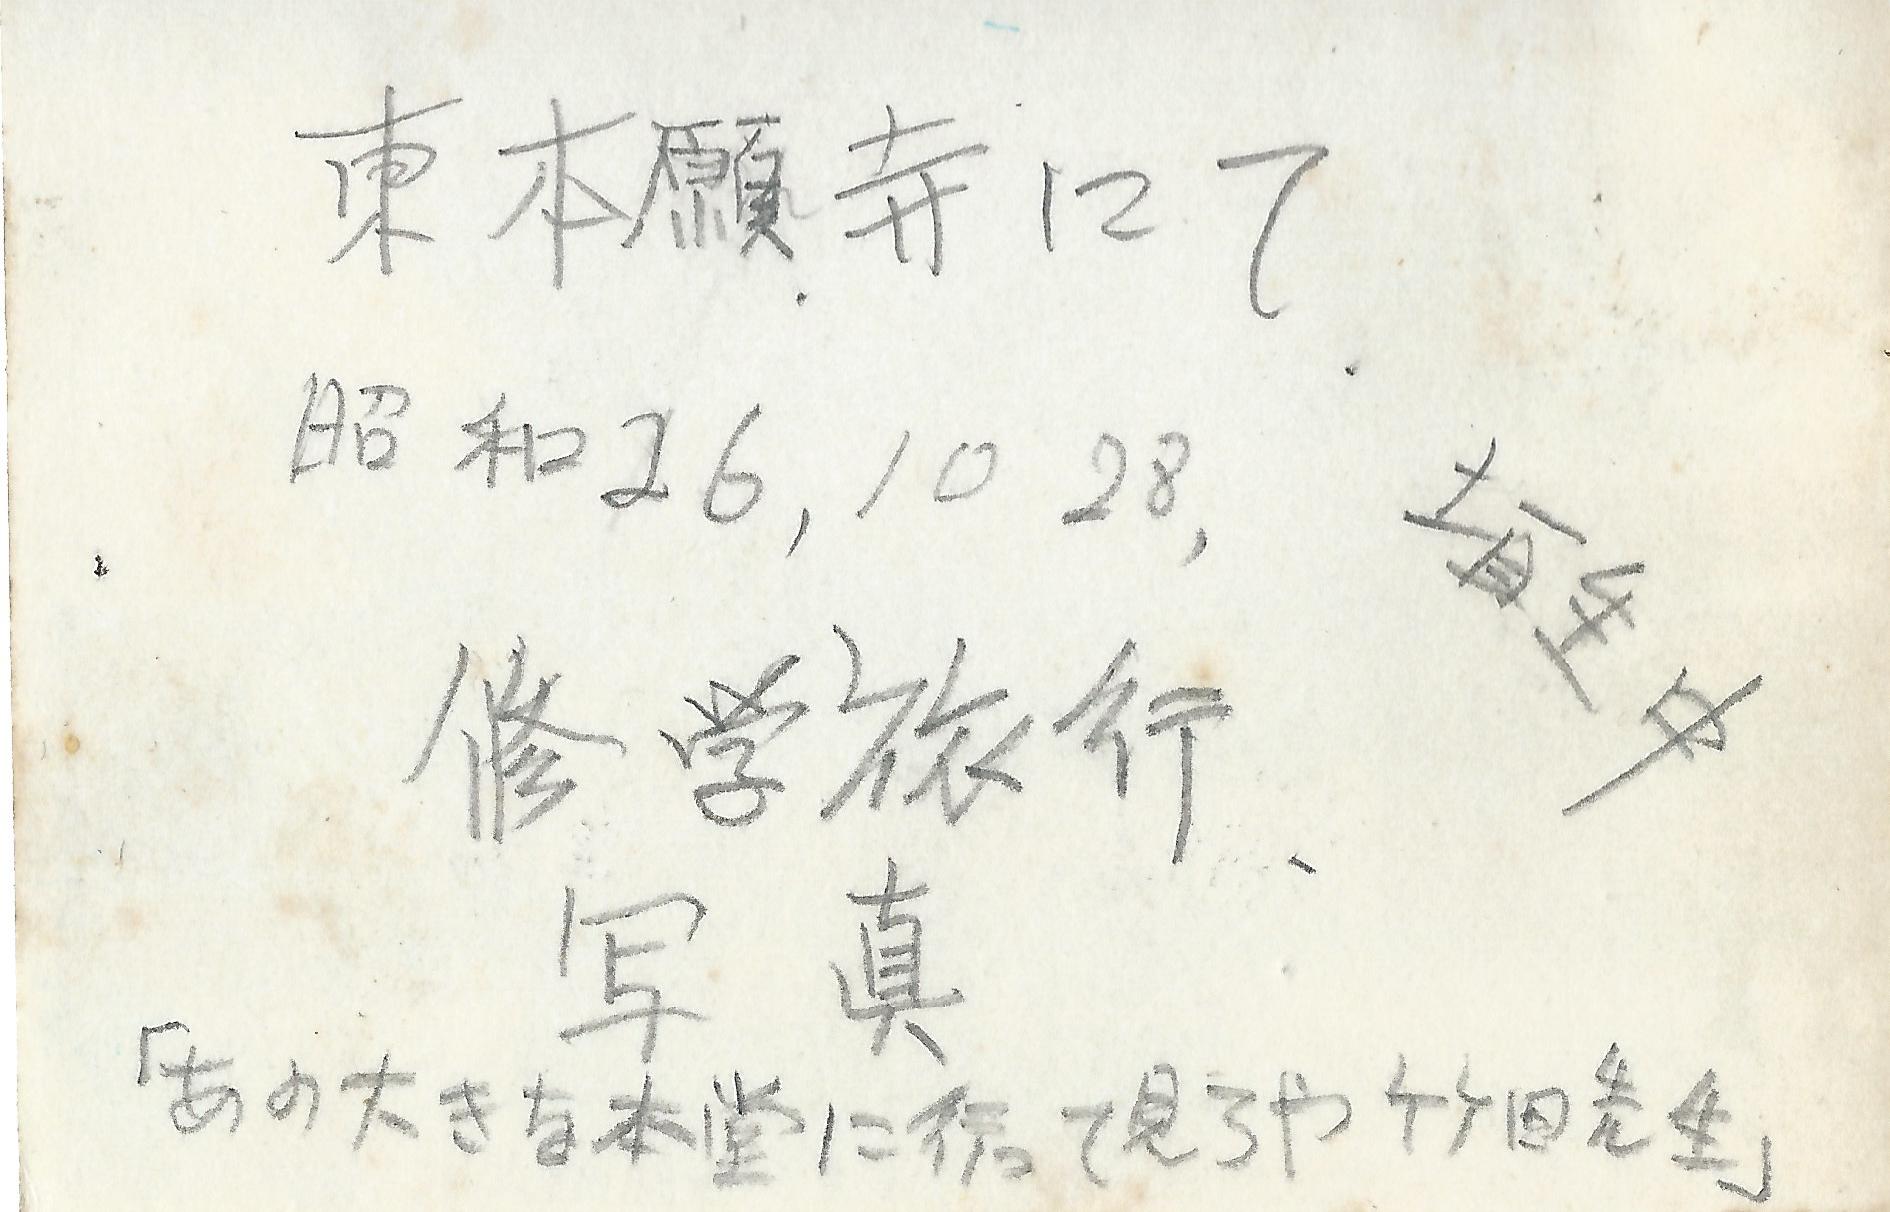 東本願寺にて
昭和26,10 28,
修学旅行、
写真
「あの大きな本堂に行って見ろや竹田先生」